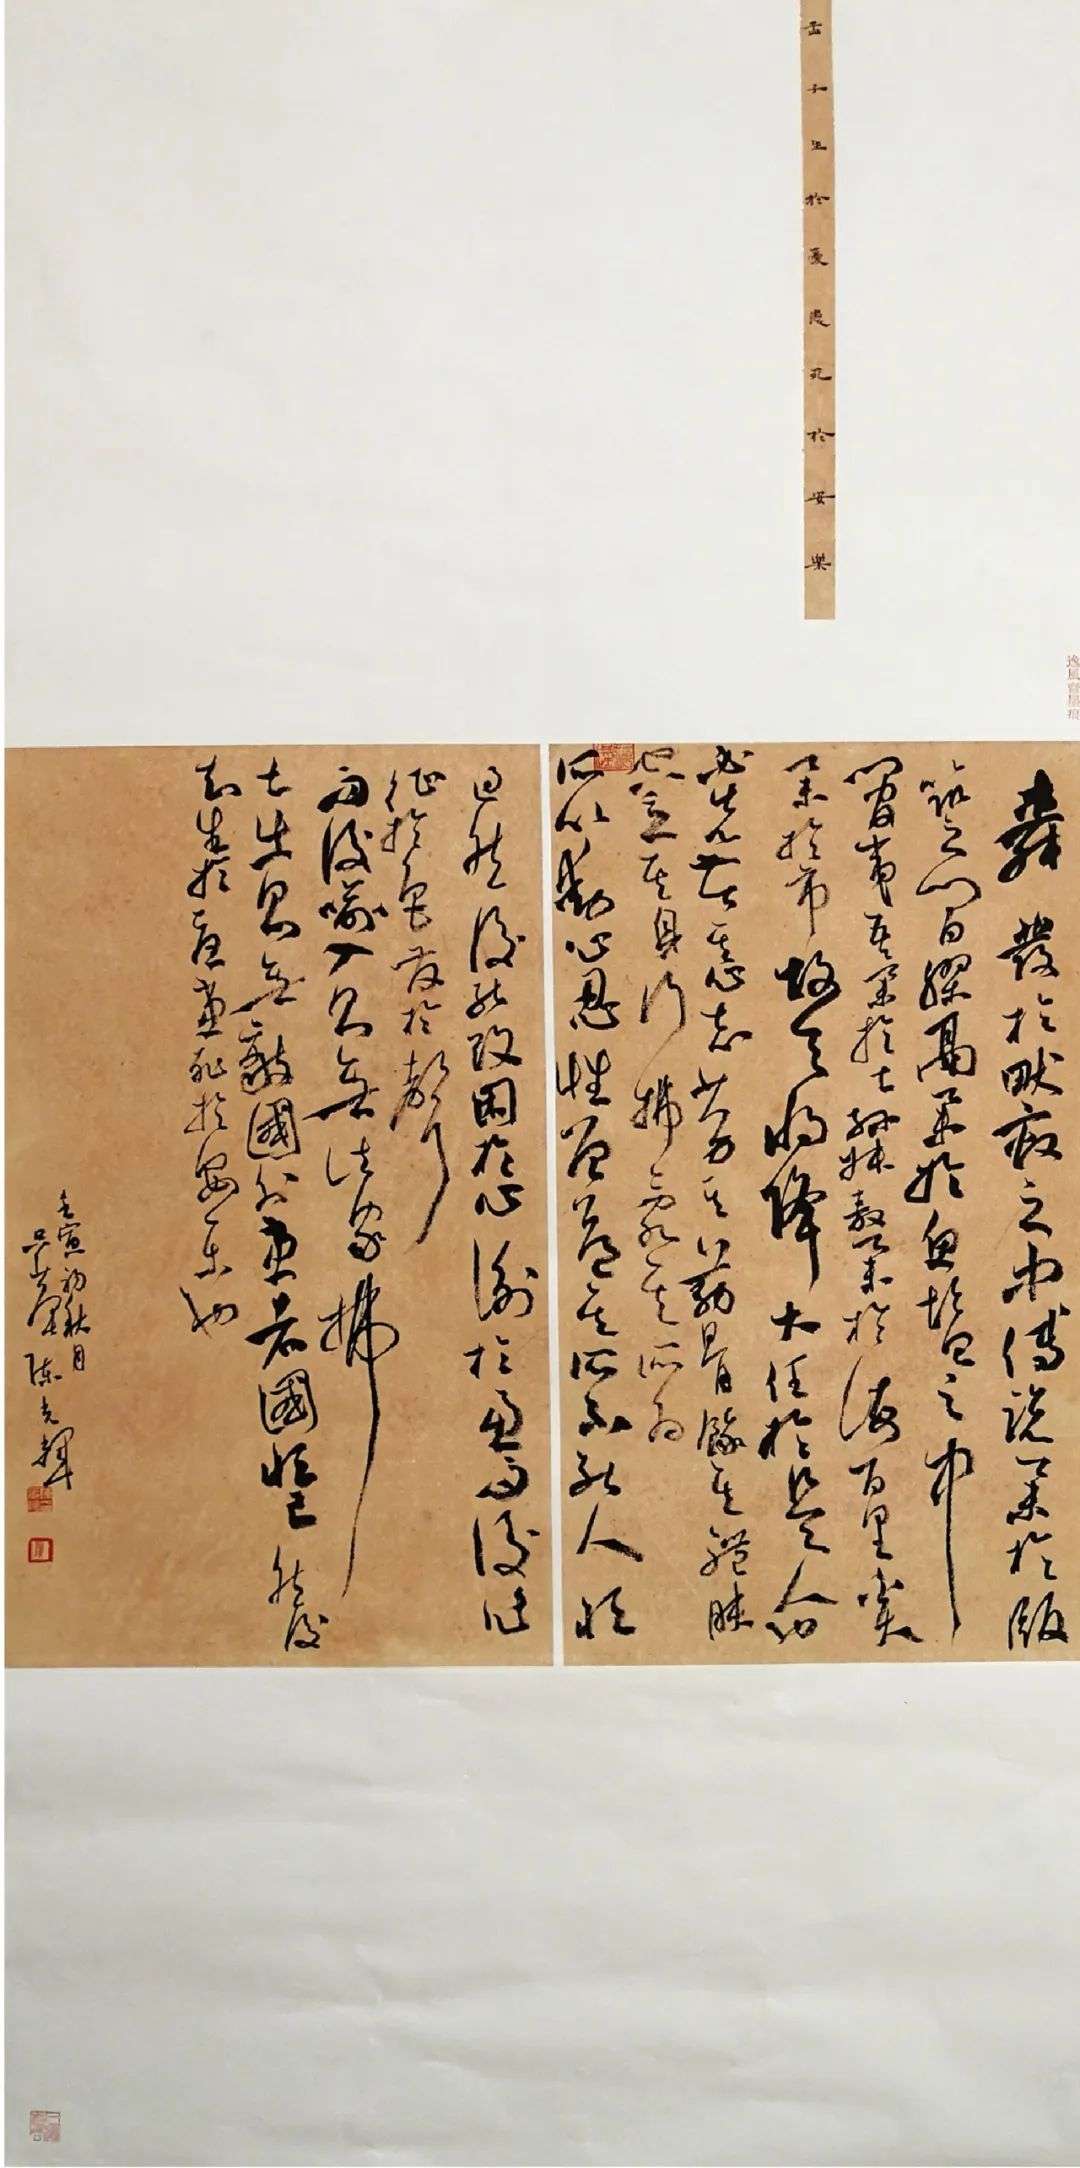 孟子生於憂患死於安樂
舜發於畎畝之中傅說舉於版
築之間膠鬲舉於魚鹽之中
管夷吾舉於士孫叔敖舉於海百里奚
舉於市故天將降大任於是人也
必先苦其心志勞其筋骨餓其體膚
空乏其身行拂亂其所為
所以動心忍性曾益其所不能人恒
過然後能改困於心衡於慮而後作
征於色發於聲
而後喻入則無法家拂
士出則無敵國外患者國恒亡然後
知生於憂患死於安樂也
壬寅初秋月
陳克輝